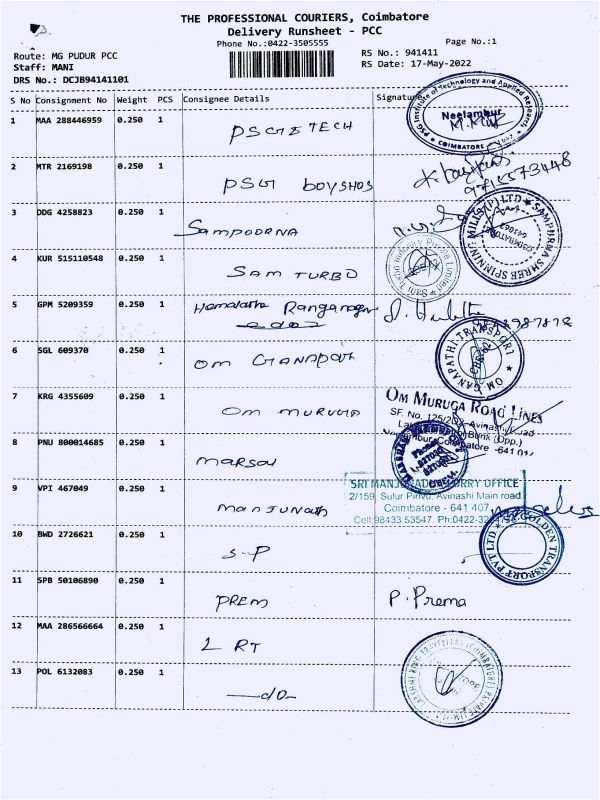 THE PROFESSIONAL COURIERS, Coimbatore
Delivery Runsheet - PCC
Phone No.:0422-3505555
Page No.:1
Route: MG PUDUR PCC
RS No.: 941411
Staff: MANI
RS Date: 17-May-2022
DRS No.: DCJB94141101
S No Consignment No Weight PCS Consignee Details Signature
1 MAA 288446959 0.250 1 PSG I TECH
PSG Institute of Technology and Applied Research
Neelambur
COIMBATORE
2 MTR 2169198 0.250 1 PSG BOYSHOS
3 DDG 4258823 0.250 1 SAMPOORNA
SAMPURNA SHREE SPINNING MILLS (P) LTD
4 KUR 515110548 0.250 1 SAM TURBO
Sam Turbo Industry Private Limited
5 GPM 5209359 0.250 1 Hemalatha Ranganagar
6 SGL 609370 0.250 1 OM GANAPATI
OM GANAPATHI TRANSPORT
7 KRG 4355609 0.250 1 OM MURUGA
OM MURUGA ROAD LINES
SF. No. 125/2D2, Avinashi Road
Bank (Opp.)
Neelambur, Coimbatore -641
8 PNU 800014685 0.250 1 MARSAL
9 VPI 467049 0.250 1 MANJUNATH
SRI MANJUNADA LORRY OFFICE
2/159, Sulur Pirivu, Avinashi Main road
Coimbatore - 641 407
Cell:98433 53547. Ph:0422-32
10 BWD 2726621 0.250 1 S.P
GOLDEN TRANSPORT PVT LTD
11 SPB 50106890 0.250 1 PREM P. Prema
12 MAA 286566664 0.250 1 L RT
13 POL 6132083 0.250 1 —do—